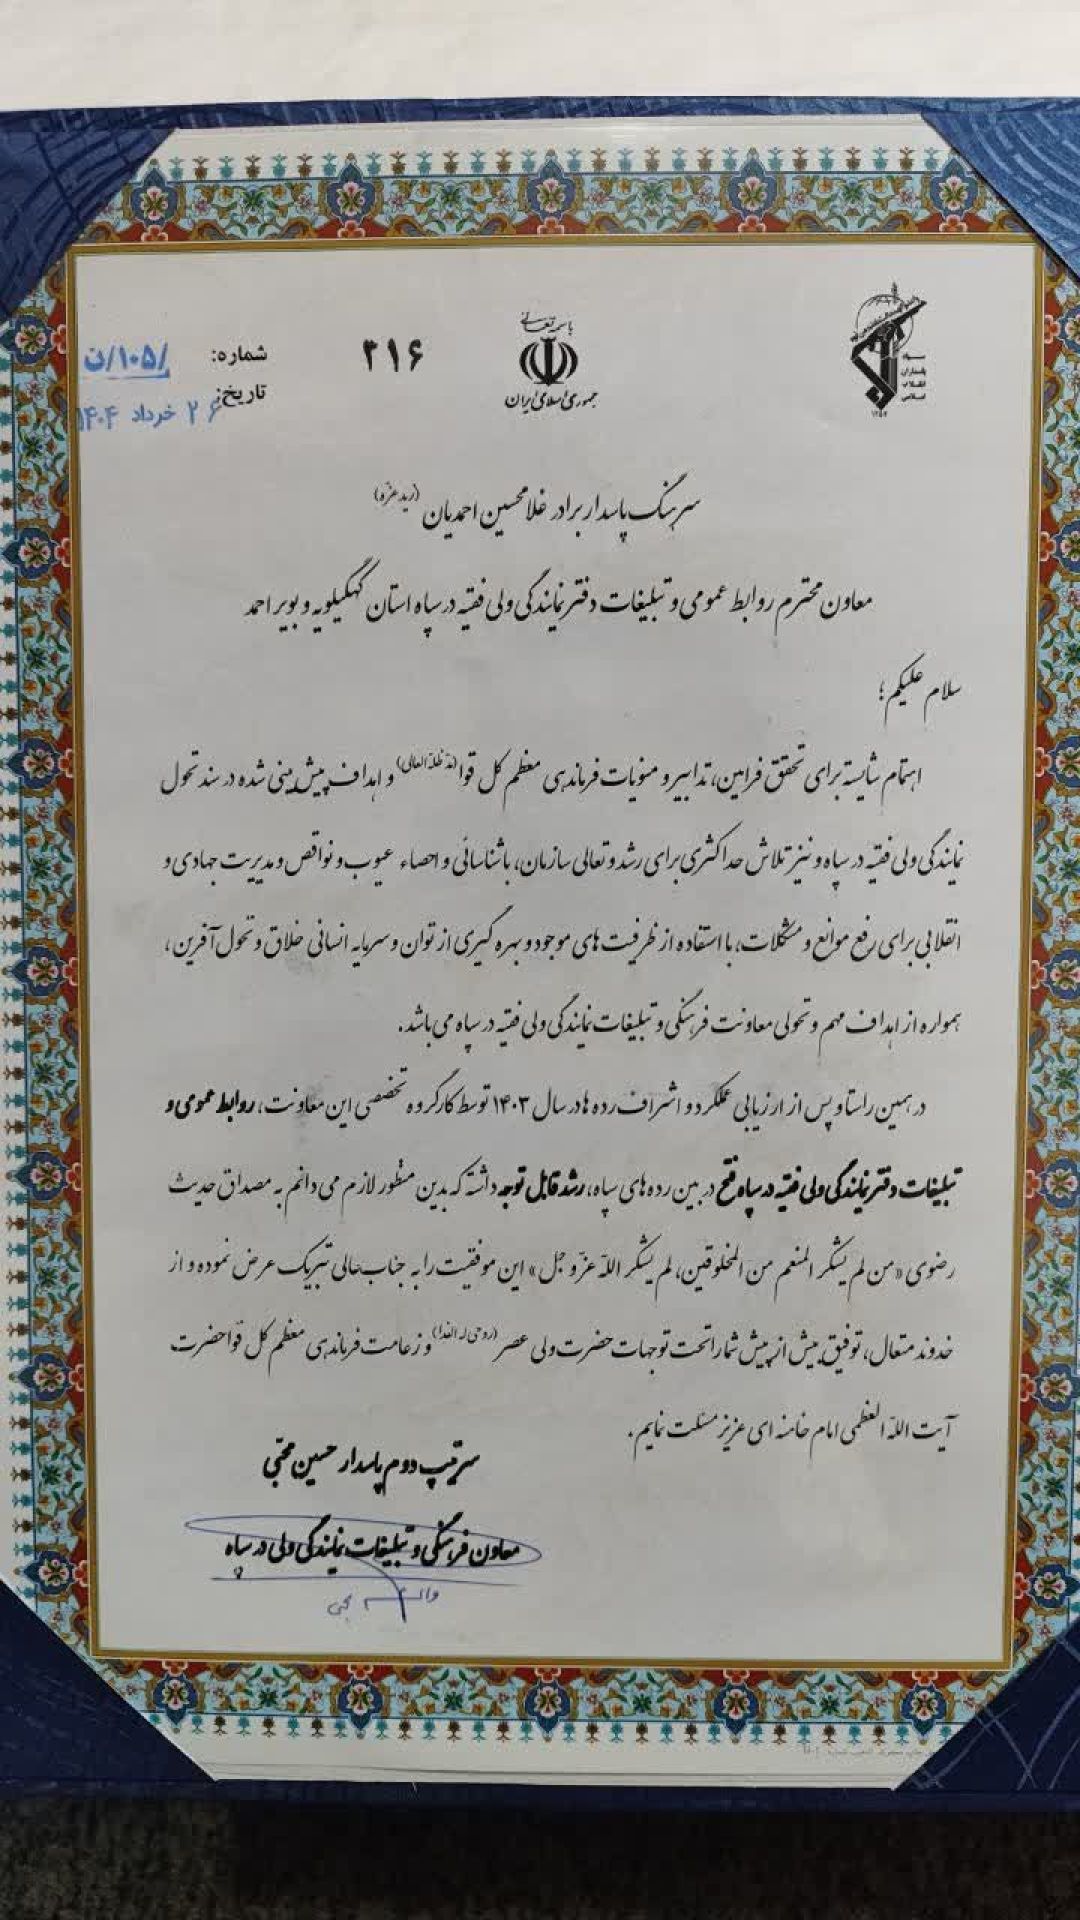 باسمه تعالی
جمهوری اسلامی ایران
سپاه
پاسداران
انقلاب
اسلامی
۳۱۶
شماره: /۱۰۵/ن
تاریخ: ۲۶ خرداد ۱۴۰۴
سرهنگ پاسدار برادر غلامحسین احمدیان (زید عزّه)
معاون محترم روابط عمومی و تبلیغات دفتر نمایندگی ولی فقیه در سپاه استان کهگیلویه و بویر احمد
سلام علیکم؛
اهتمام شایسته برای تحقق فرامین، تدابیر و منویات فرماندهی معظم کل قوا (مدّ ظلّه العالی) و اهداف پیش بینی شده در سند تحول
نمایندگی ولی فقیه در سپاه و نیز تلاش حداکثری برای رشد و تعالی سازمان، با شناسائی و احصاء عیوب و نواقص و مدیریت جهادی و
انقلابی برای رفع موانع و مشکلات، با استفاده از ظرفیت های موجود و بهره گیری از توان و سرمایه انسانی خلاق و تحول آفرین،
همواره از اهداف مهم و تحولی معاونت فرهنگی و تبلیغات نمایندگی ولی فقیه در سپاه می باشد.
در همین راستا و پس از ارزیابی عملکرد و اشراف رده ها در سال ۱۴۰۳ توسط کارگروه تخصصی این معاونت، روابط عمومی و
تبلیغات دفتر نمایندگی ولی فقیه در سپاه فتح در بین رده های سپاه، رشد قابل توجه داشته که بدین منظور لازم می دانم به مصداق حدیث
رضوی «من لم یشکر المنعم من المخلوقین، لم یشکر اللّه عزّ و جل» این موفقیت را به جناب عالی تبریک عرض نموده و از
خدوند متعال، توفیق بیش از پیش شما را تحت توجهات حضرت ولی عصر (روحی له الفدا) و زعامت فرماندهی معظم کل قوا حضرت
آیت اللّه العظمی امام خامنه ای عزیز مسئلت نمایم.
سرتیپ دوم پاسدار حسین محبّی
معاون فرهنگی و تبلیغات نمایندگی ولی در سپاه